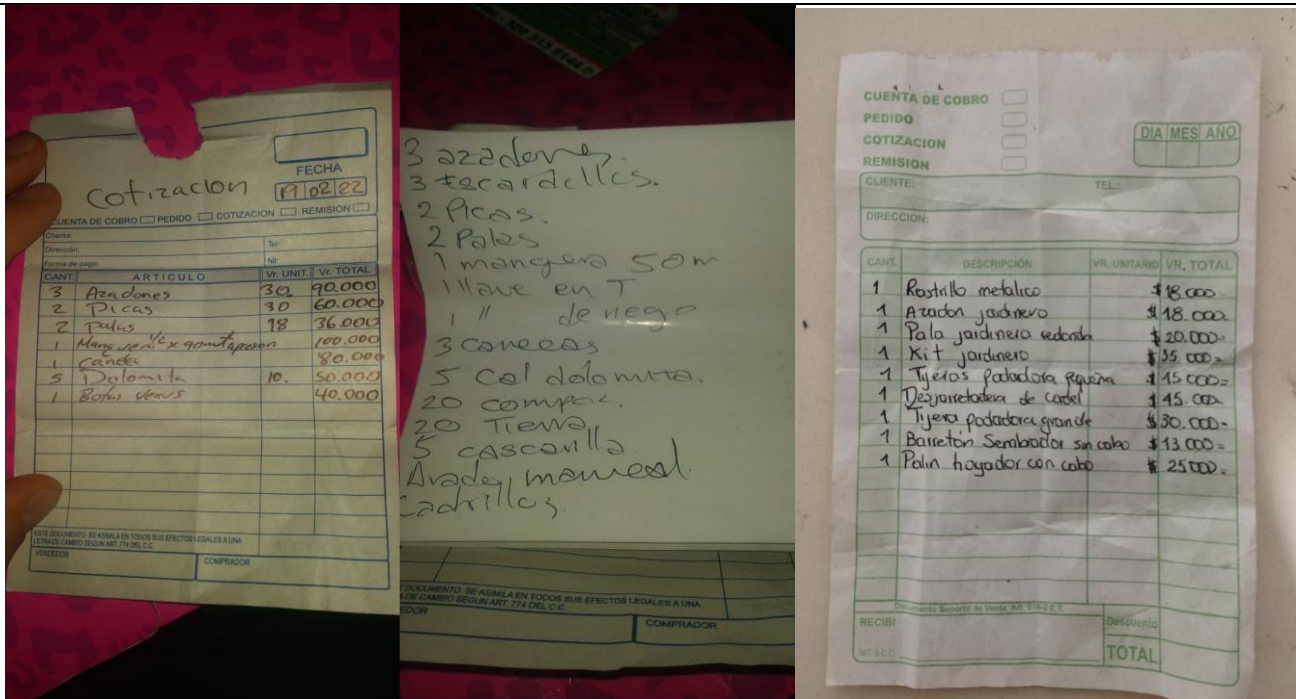 FECHA
Cotizacion
19 02 22
CUENTA DE COBRO PEDIDO COTIZACION REMISION
Cliente:
Dirección: Tel:
Forma de pago: Nit:
CANT. ARTICULO Vr. UNIT. Vr. TOTAL
3 Azadones 30. 90.000
2 Picas 30 60.000
2 Palas 18 36.000
1 Manguera 1/2 x 90mt 100.000
1 80.000
5 Dolomita 10. 50.000
1 Botas Venus 40.000
ESTE DOCUMENTO SE ASIMILA EN TODOS SUS EFECTOS LEGALES A UNA
LETRA DE CAMBIO SEGUN ART. 774 DEL C.C.
VENDEDOR COMPRADOR
3 azadones.
3 escardellos.
2 Picas.
2 Palas
1 manguera 50m
1 llave en T
1 " de riego
3 canecas
5 Cal dolomita.
20 compos.
20 Tierra
5 cascarilla
Arado manual.
Ladrillos
DOCUMENTO SE ASIMILA EN TODOS SUS EFECTOS LEGALES A UNA
DE CAMBIO SEGUN ART. 774 DEL C.C.
EDOR COMPRADOR
CUENTA DE COBRO
PEDIDO
COTIZACION
REMISION
DIA MES AÑO
CLIENTE: TEL.:
DIRECCION:
CANT. DESCRIPCIÓN VR. UNITARIO VR. TOTAL
1 Rastrillo metalico $18.000
1 Azadon jardinero $18.000=
1 Pala jardinera redonda $20.000=
1 Kit jardinero $35.000=
1 Tijeras podadora pequeña $15.000=
1 Desjarretadera de cartel $45.000
1 Tijera podadora grande $30.000=
1 Barretón Sembrador sin cabo $13.000=
1 Palin hoyador con cabo $25.000=
Documento Soporte de Venta Art. 616-2 E.T.
RECIBI Descuento
NIT. ó C.C. TOTAL